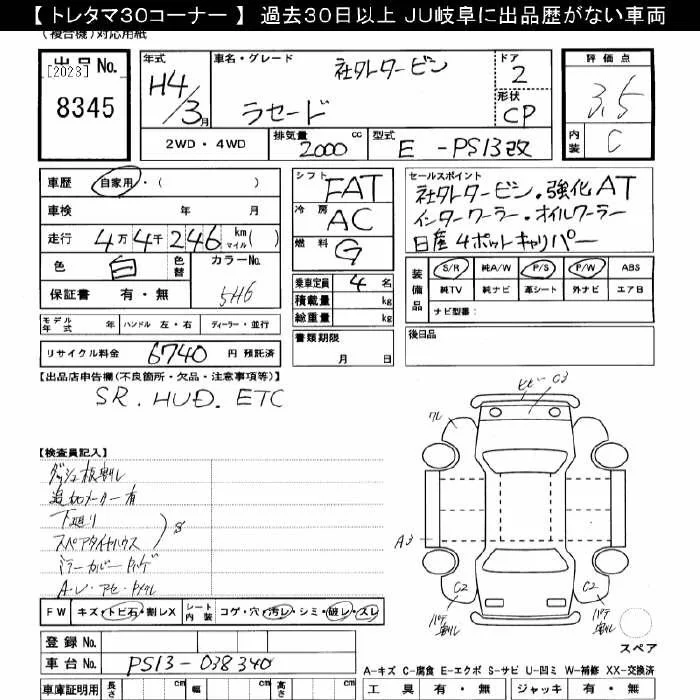 【 トレタマ30コーナー 】 過去30日以上 JU岐阜に出品歴がない車両
(複合機)対応用紙
出品No.
[2023]
8345
年式
H4/3月
車名・グレード
社外 タービン
ラセード
ドア
2
形状
CP
評価点
3.5
内装
C
2WD・4WD
排気量
2000 cc
型式
E -PS13改
車歴 自家用・( )
車検 年 月
走行 4万4千246 km マイル( )
色 白 色替
カラーNo.
5H6
保証書 有・無
シフト FAT
冷房 AC
燃料 G
乗車定員 4 名
積載量 kg
総重量 kg
セールスポイント
社外タービン・強化AT
インタークーラー・オイルクーラー
日産4ポットキャリパー
装備品
S/R 純A/W P/S P/W ABS
純TV 純ナビ 革シート 外ナビ エアB
ナビ型番:
モデル年式 年 ハンドル 左・右 ディーラー・並行
リサイクル料金 6740 円 預託済
書類期限
月 日
後日品
【出品店申告欄(不良箇所・欠品・注意事項等)】
SR. HUD. ETC
【検査員記入】
ダッシュ板割レ
追加メーター有
下廻り
スペアタイヤハウス
S
ミラーカバー
A・レ・アセ・
ヒビ C3
ワレ
A3
C2
C2
パテ割レ
パテ割レ
スペア
FW キズ・トビ石・割レX シート内装 コゲ・穴・汚レ・シミ・破レ・スレ
登録No.
車台No. PS13-038340
車庫証明用 長さ cm 幅 cm 高さ cm
A-キズ C-腐食 E-エクボ S-サビ U-凹ミ W-補修 XX-交換済
工具 有・無 ジャッキ 有・無